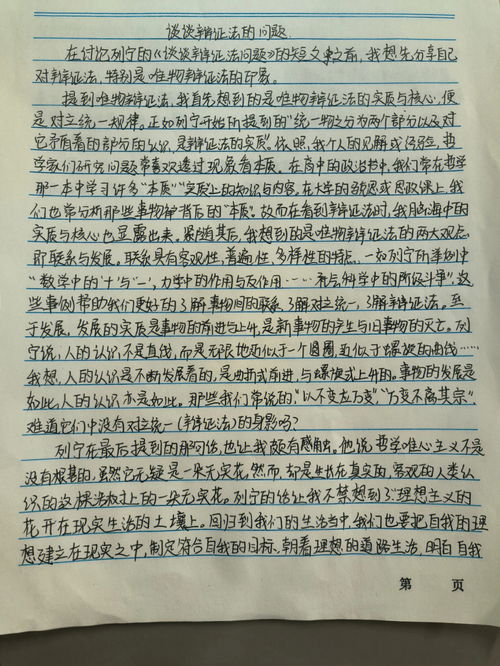 谈谈辩证法的问题
在讨论列宁的《谈谈辩证法问题》的短文章之前,我想先分享自己
对辩证法,特别是唯物辩证法的印象。
提到唯物辩证法,我首先想到的是唯物辩证法的实质与核心,便
是对立统一规律。正如列宁开始所提到的“统一物之分为两个部分以及对
它矛盾着的部分的认识,是辩证法的实质”。依照我个人的见解或经验,哲
学家们研究问题常喜欢透过现象看本质。在高中的政治书中,我们常在哲学
那一本中学习许多“本质”“实质”上的知识与内容,在大学的政思或思政课上,我
们也常分析那些事物背后的“本质”。故而在看到辩证法时,我脑海中的
实质与核心也显露出来。紧随其后,我想到的是唯物辩证法的两大观点,
即联系与发展。联系具有客观性、普遍性、多样性的特点……一如列宁所举例中
“数学中的‘+’与‘-’,力学中的作用与反作用……社会科学中的阶级斗争”,这
些事例帮助我们更好的了解事物间的联系,了解对立统一,了解辩证法。至
于发展,发展的实质是事物的前进与上升,是新事物的产生与旧事物的灭亡。列
宁说,人的认识不是直线,而是无限地近似于一个圆圈,近似于螺旋的曲线……
我想,人的认识是不断发展着的,是曲折式前进,与螺旋式上升的。事物的发展是
如此,人的认识亦是如此。那些我们常说的,“以不变应万变”,“万变不离其宗”,
难道它们中没有对立统一(辩证法)的身影吗?
列宁在最后提到的那句话,也让我颇有感触。他说哲学唯心主义不是
没有根基的,虽然它无疑是一朵无实花,然而,却是生长在真实的,客观的人类认
识的这棵活树上的一朵无实花。列宁的话让我不禁想到了理想主义的
花开在现实生活的土壤上。回归到我们的生活当中,我们也要把自我的理
想建立在现实之中,制定符合自我的目标,朝着理想的道路生活,明白自我
第 页